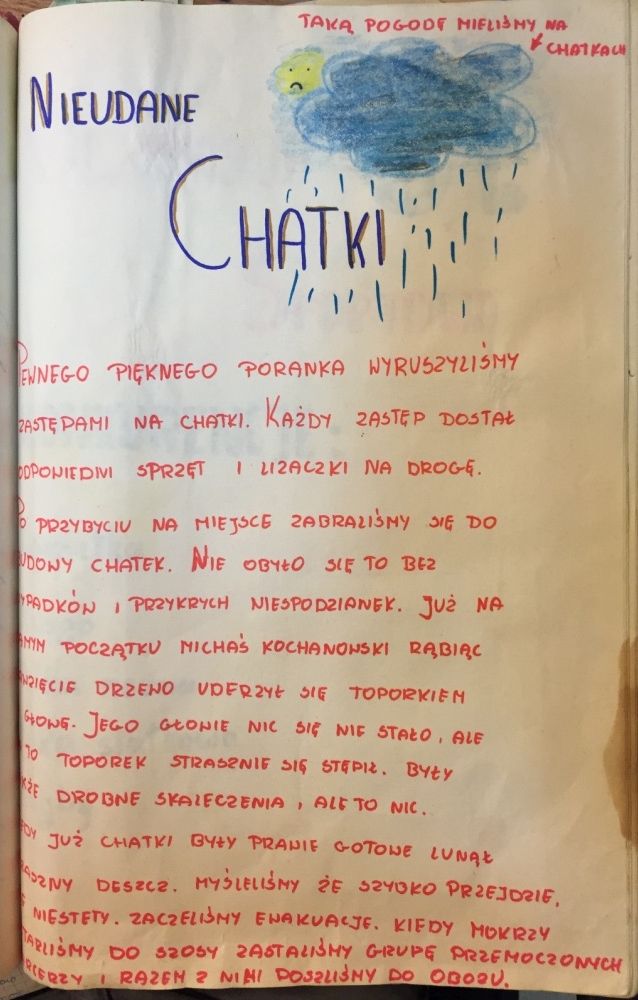 TAKĄ POGODĘ MIELIŚMY NA
CHATKACH
NIEUDANE
CHATKI
PEWNEGO PIĘKNEGO PORANKA WYRUSZYLIŚMY
ZASTĘPAMI NA CHATKI. KAŻDY ZASTĘP DOSTAŁ
ODPOWIEDNI SPRZĘT I LIZACZKI NA DROGĘ.
PO PRZYBYCIU NA MIEJSCE ZABRALIŚMY SIĘ DO
UDOWY CHATEK. NIE OBYŁO SIĘ TO BEZ
YPADKÓW I PRZYKRYCH NIESPODZIANEK. JUŻ NA
AMYM POCZĄTKU MICHAŚ KOCHANOWSKI RĄBIĄC
ZAWZIĘCIE DRZEWO UDERZYŁ SIĘ TOPORKIEM
GŁOWĘ. JEGO GŁOWIE NIC SIĘ NIE STAŁO, ALE
TO TOPOREK STRASZNIE SIĘ STĘPIŁ. BYŁY
KŻE DROBNE SKALECZENIA, ALE TO NIC.
EDY JUŻ CHATKI BYŁY PRAWIE GOTOWE LUNĄŁ
RASZNY DESZCZ. MYŚLELIŚMY ŻE SZYBKO PRZEJDZIE,
E NIESTETY. ZACZELIŚMY EWAKUACJE. KIEDY MOKRZY
TARLIŚMY DO SZOSY ZASTALIŚMY GRUPĘ PRZEMOCZONYCH
RCERZY I RAZEM Z NIMI POSZLIŚMY DO OBOZU.